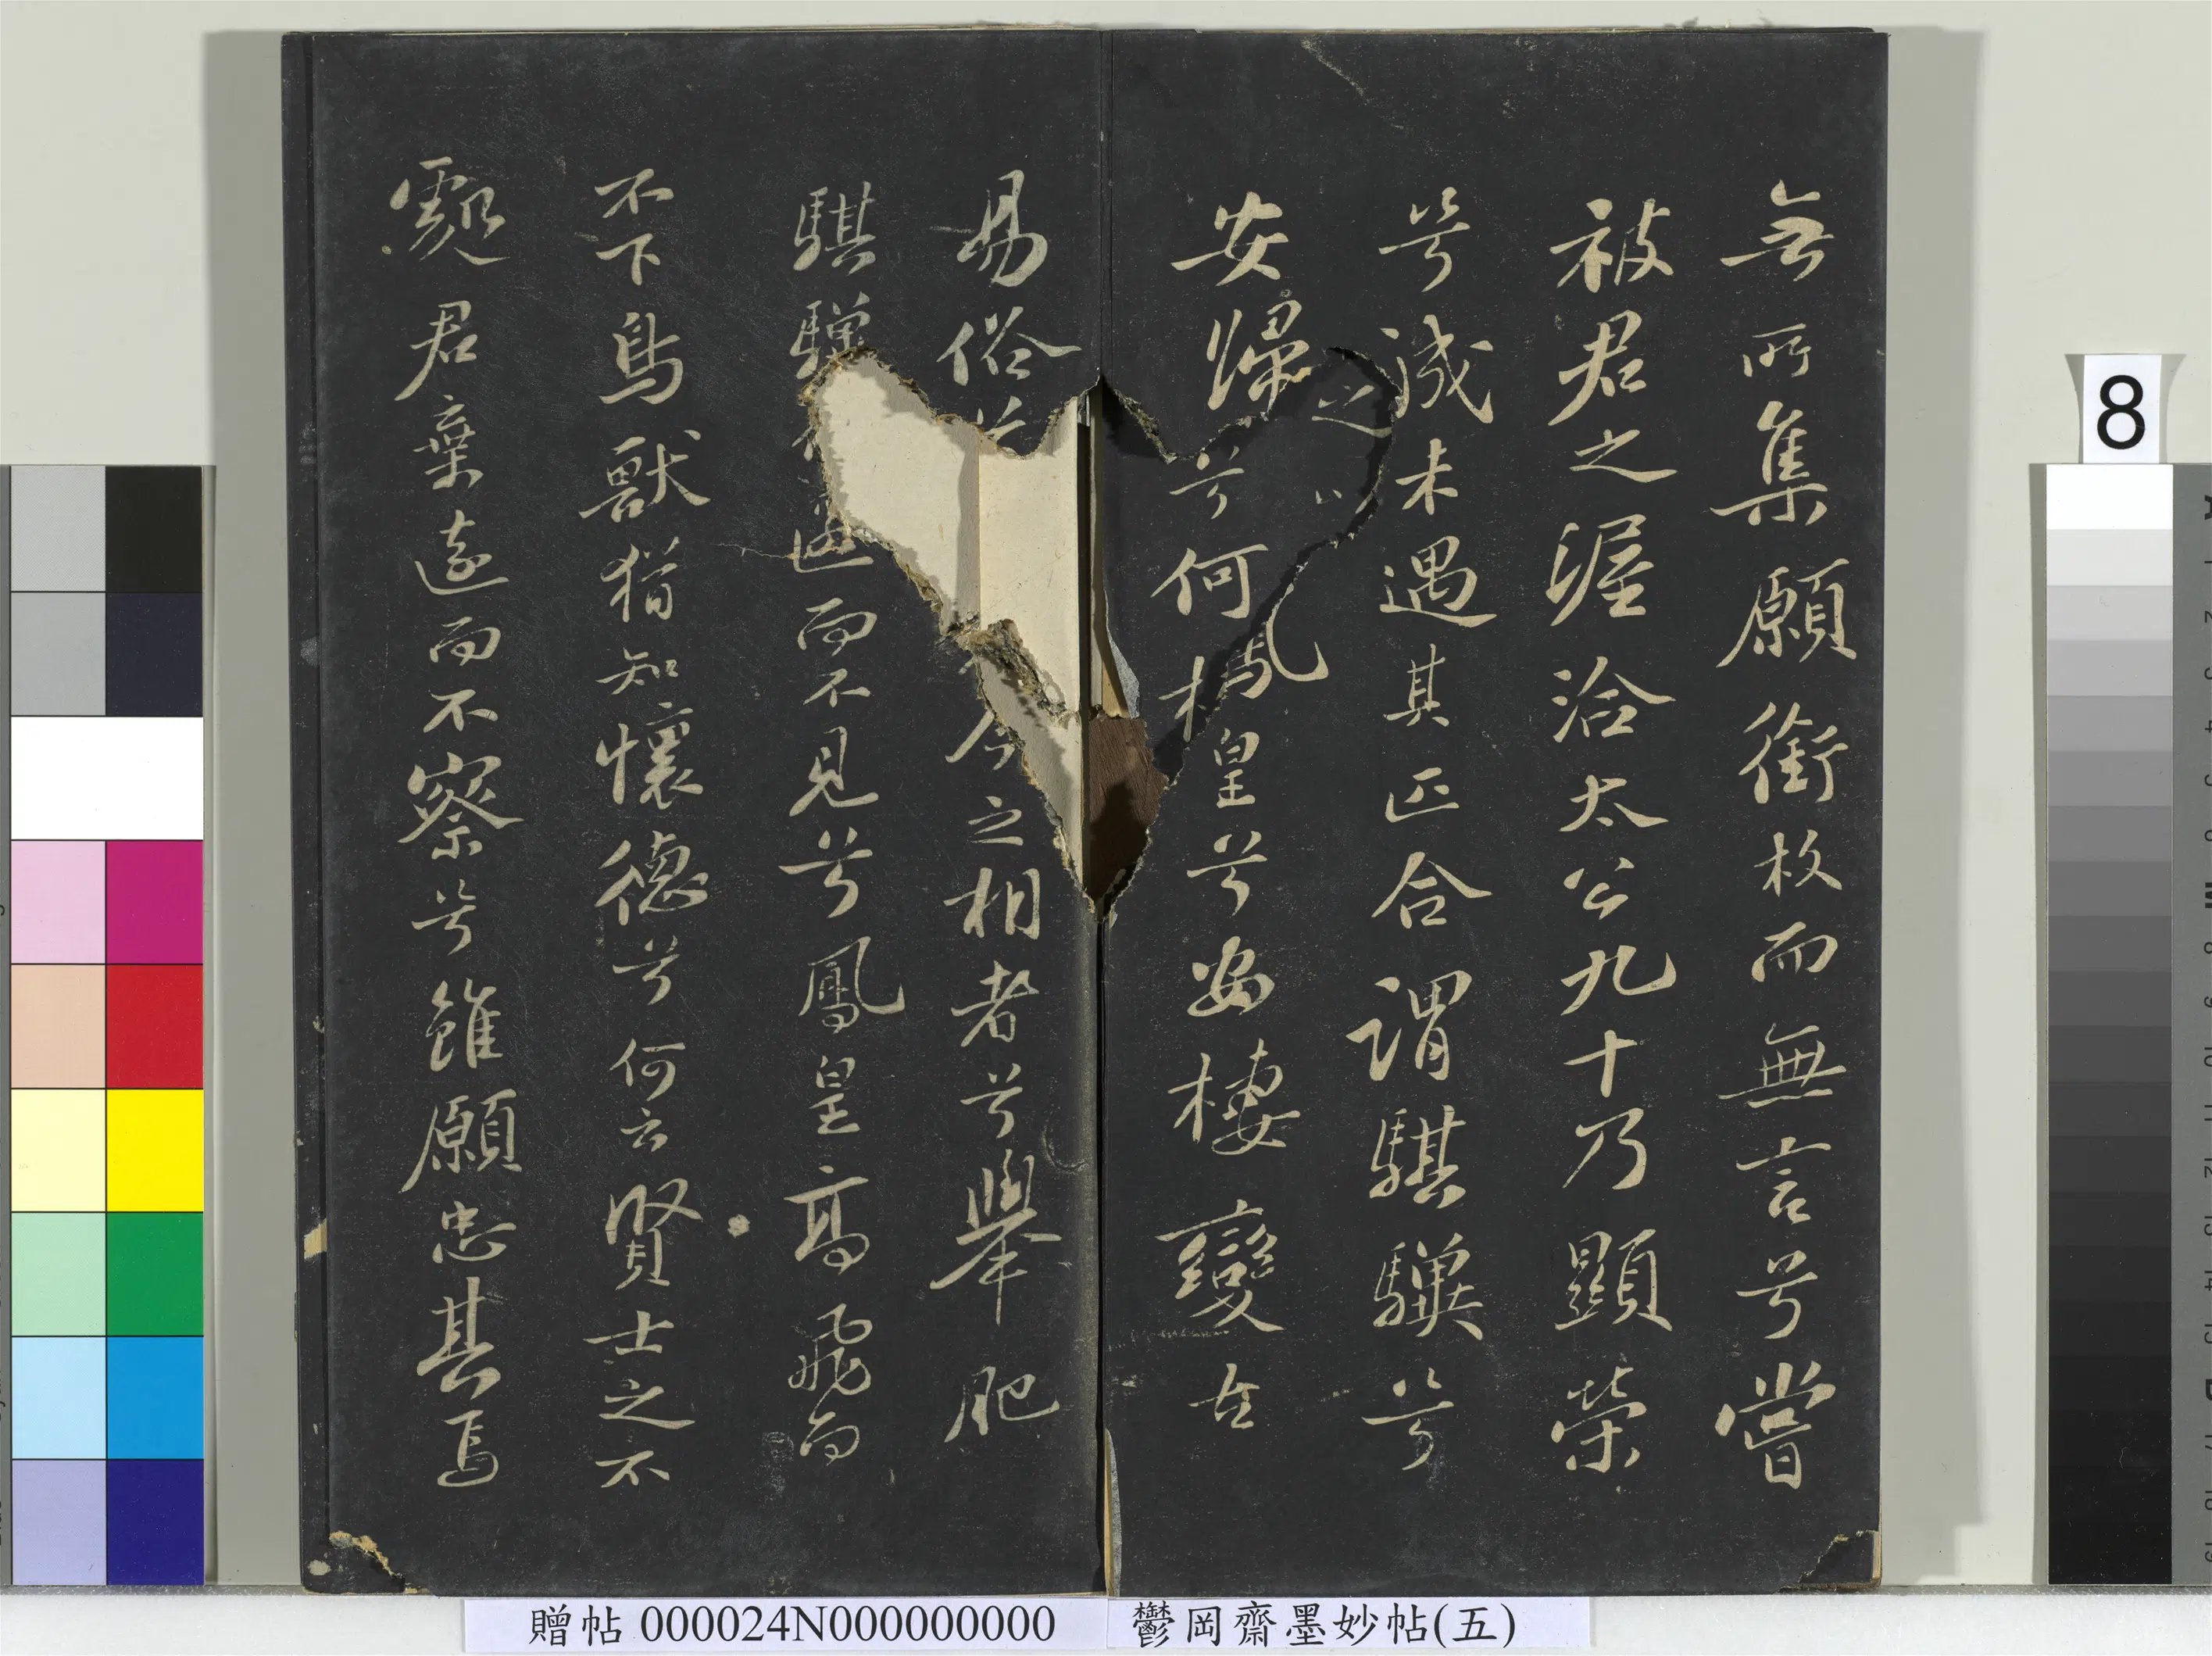 無所集願銜枚而無言兮嘗
被君之渥洽太公九十乃顯榮
兮誠未遇其匹合謂騏驥兮
之
安歸兮何鳳皇兮安棲變古
易俗今之相者兮舉肥
騏驥而不見兮鳳皇高飛而
不下鳥獸猶知懷德兮何云賢士之不
處君棄遠而不察兮雖願忠其焉
8
贈帖 000024N000000000 鬱岡齋墨妙帖(五)